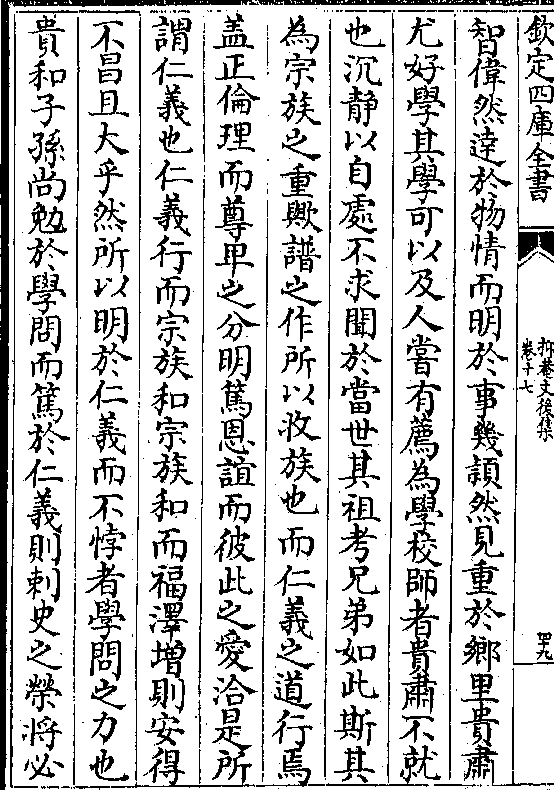 欽定四庫全書
抑菴文後集
卷十七
四九
智偉然逹於物情而明於事幾頴然見重於鄉里貴肅
尤好學其學可以及人嘗有薦為學校師者貴肅不就
也沉静以自處不求聞於當世其祖考兄弟如此斯其
為宗族之重歟譜之作所以收族也而仁義之道行焉
盖正倫理而尊卑之分明篤恩誼而彼此之愛洽是所
謂仁義也仁義行而宗族和宗族和而福澤增則安得
不昌且大乎然所以明於仁義而不悖者學問之力也
貴和子孫尚勉於學問而篤於仁義則刺史之榮将必